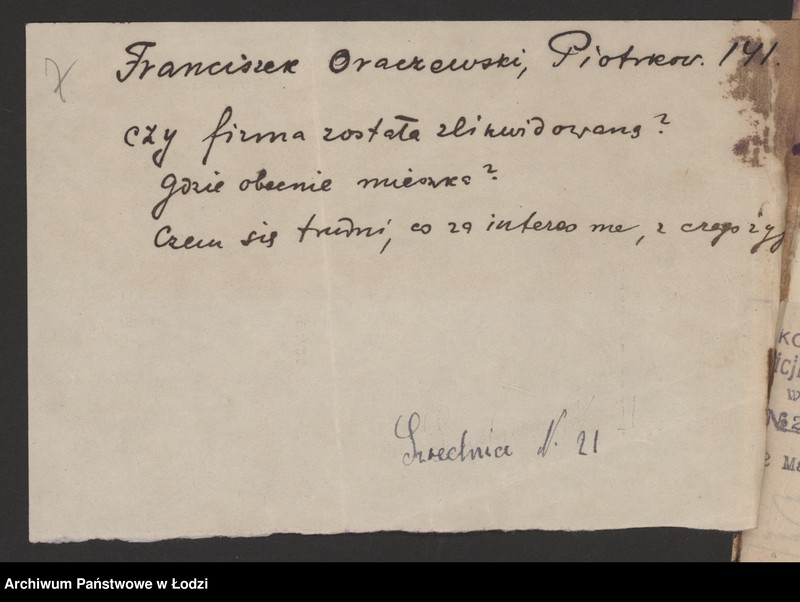 Franciszek Oraczewski, Piotrkow. 141.
czy firma została zlikwidowaną?
gdzie obecnie mieszka?
Czem się trudni, co za interes ma, z czego żyj
Średnia N. 21
KO
icj
w
№ 2
2 Ma
Archiwum Państwowe w Łodzi